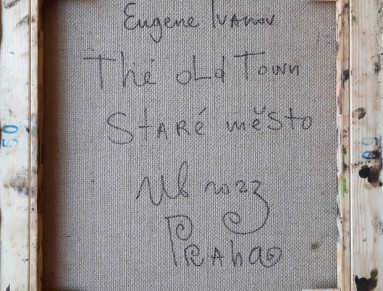 Eugene Ivanov
The old Town
Staré město
2023
Praha
50